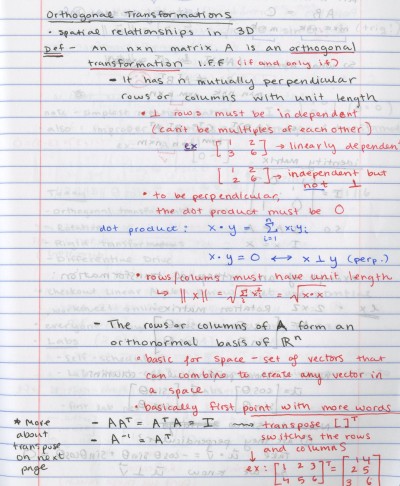 Orthogonal Transformations
• spatial relationships in 3D
Def - An n×n matrix A is an orthogonal
transformation I.F.F (if and only if)
- It has n mutually perpendicular
rows or columns with unit length
• ⊥ rows must be independent
(can't be multiples of each other)
ex [1 2
3 6] → linearly dependent
[1 2
2 6] → independent but
not ⊥
• to be perpendicular,
the dot product must be 0
dot product: x · y = Σ_{i=1}^{n} x_i y_i
x · y = 0 ↔ x ⊥ y (perp.)
• rows/colums must have unit length
↳ ||x|| = √(Σ x_i²) = √(x·x)
- The rows or columns of A form an
orthonormal basis of ℝⁿ
• basic for space - set of vectors that
can combine to create any vector in
a space
• basically first point with more words
* More about transpose on next page
- AAᵀ = AᵀA = I → transpose [ ]ᵀ
- A⁻¹ = Aᵀ switches the rows
and columns
ex: [1 2 3
4 5 6]ᵀ = [1 4
2 5
3 6]